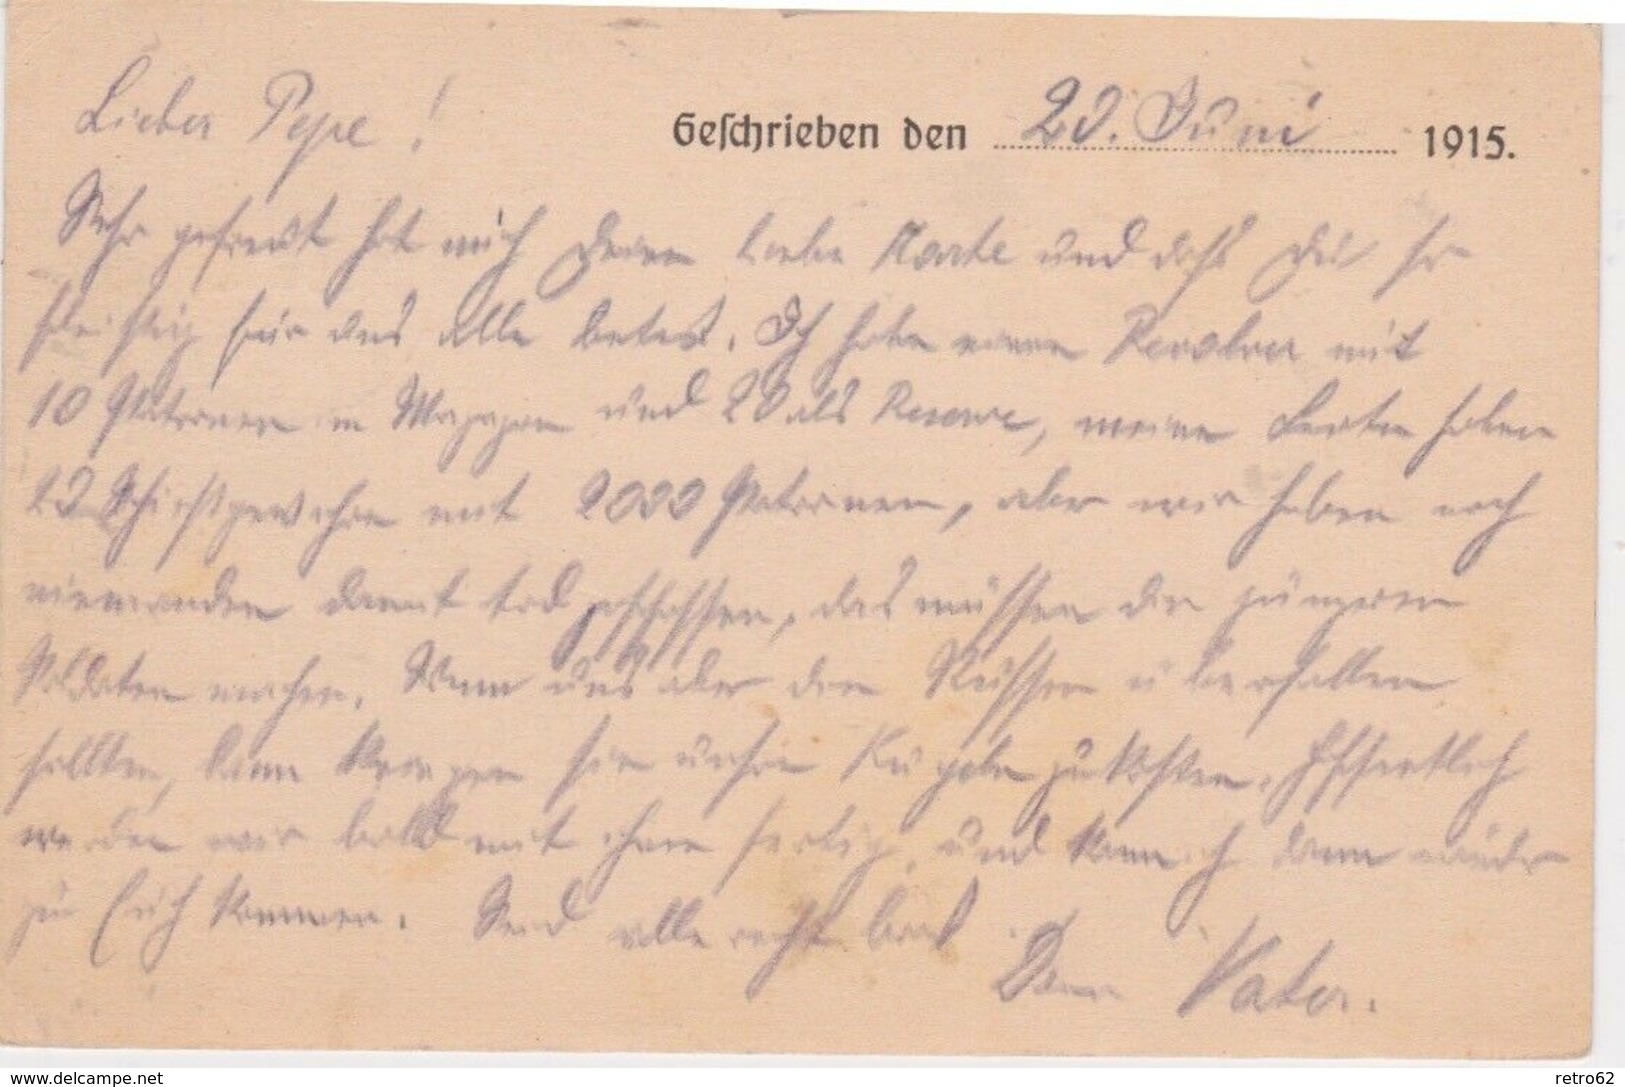 Lieber Pepe!
Geschrieben den 20. Juni 1915.
Sehr gefreut hat mich Deine liebe Karte und daß Du so
fleißig für uns alle betest. Ich habe einen Revolver mit
10 Patronen im Magazin und 20 als Reserve, meine Leute haben
12 Schießgewehre mit 2000 Patronen, aber wir haben noch
niemanden damit tod geschossen, das müssen die jüngeren
Soldaten machen. Wenn uns aber die Russen überfallen
sollten, dann kriegen sie unsere Kugeln zu kosten. Hoffentlich
werden wir bald mit ihnen fertig, und kann ich dann wieder
zu Euch kommen. Seid alle recht brav.
Dein Vater.
www.delcampe.net
retro62